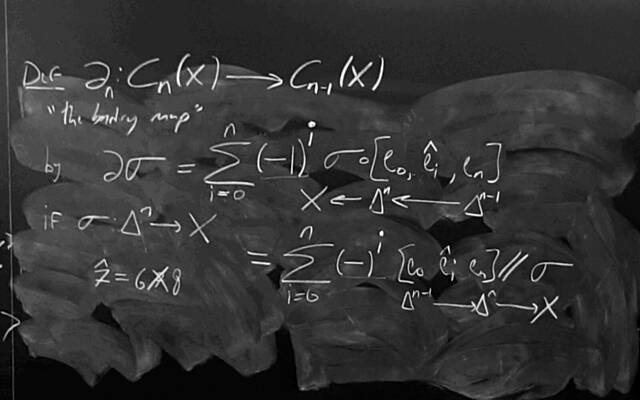 DEF ∂ₙ: Cₙ(X) ⟶ Cₙ₋₁(X)
"the bndry map"
by ∂σ = ∑_{i=0}^{n} (-1)^i σ∘[e₀, êᵢ, eₙ]
X ← Δⁿ ⟵ Δⁿ⁻¹
if σ: Δⁿ → X
= ∑_{i=0}^{n} (-)^i [e₀ êᵢ eₙ] // σ
Δⁿ⁻¹ ⟶ Δⁿ ⟶ X